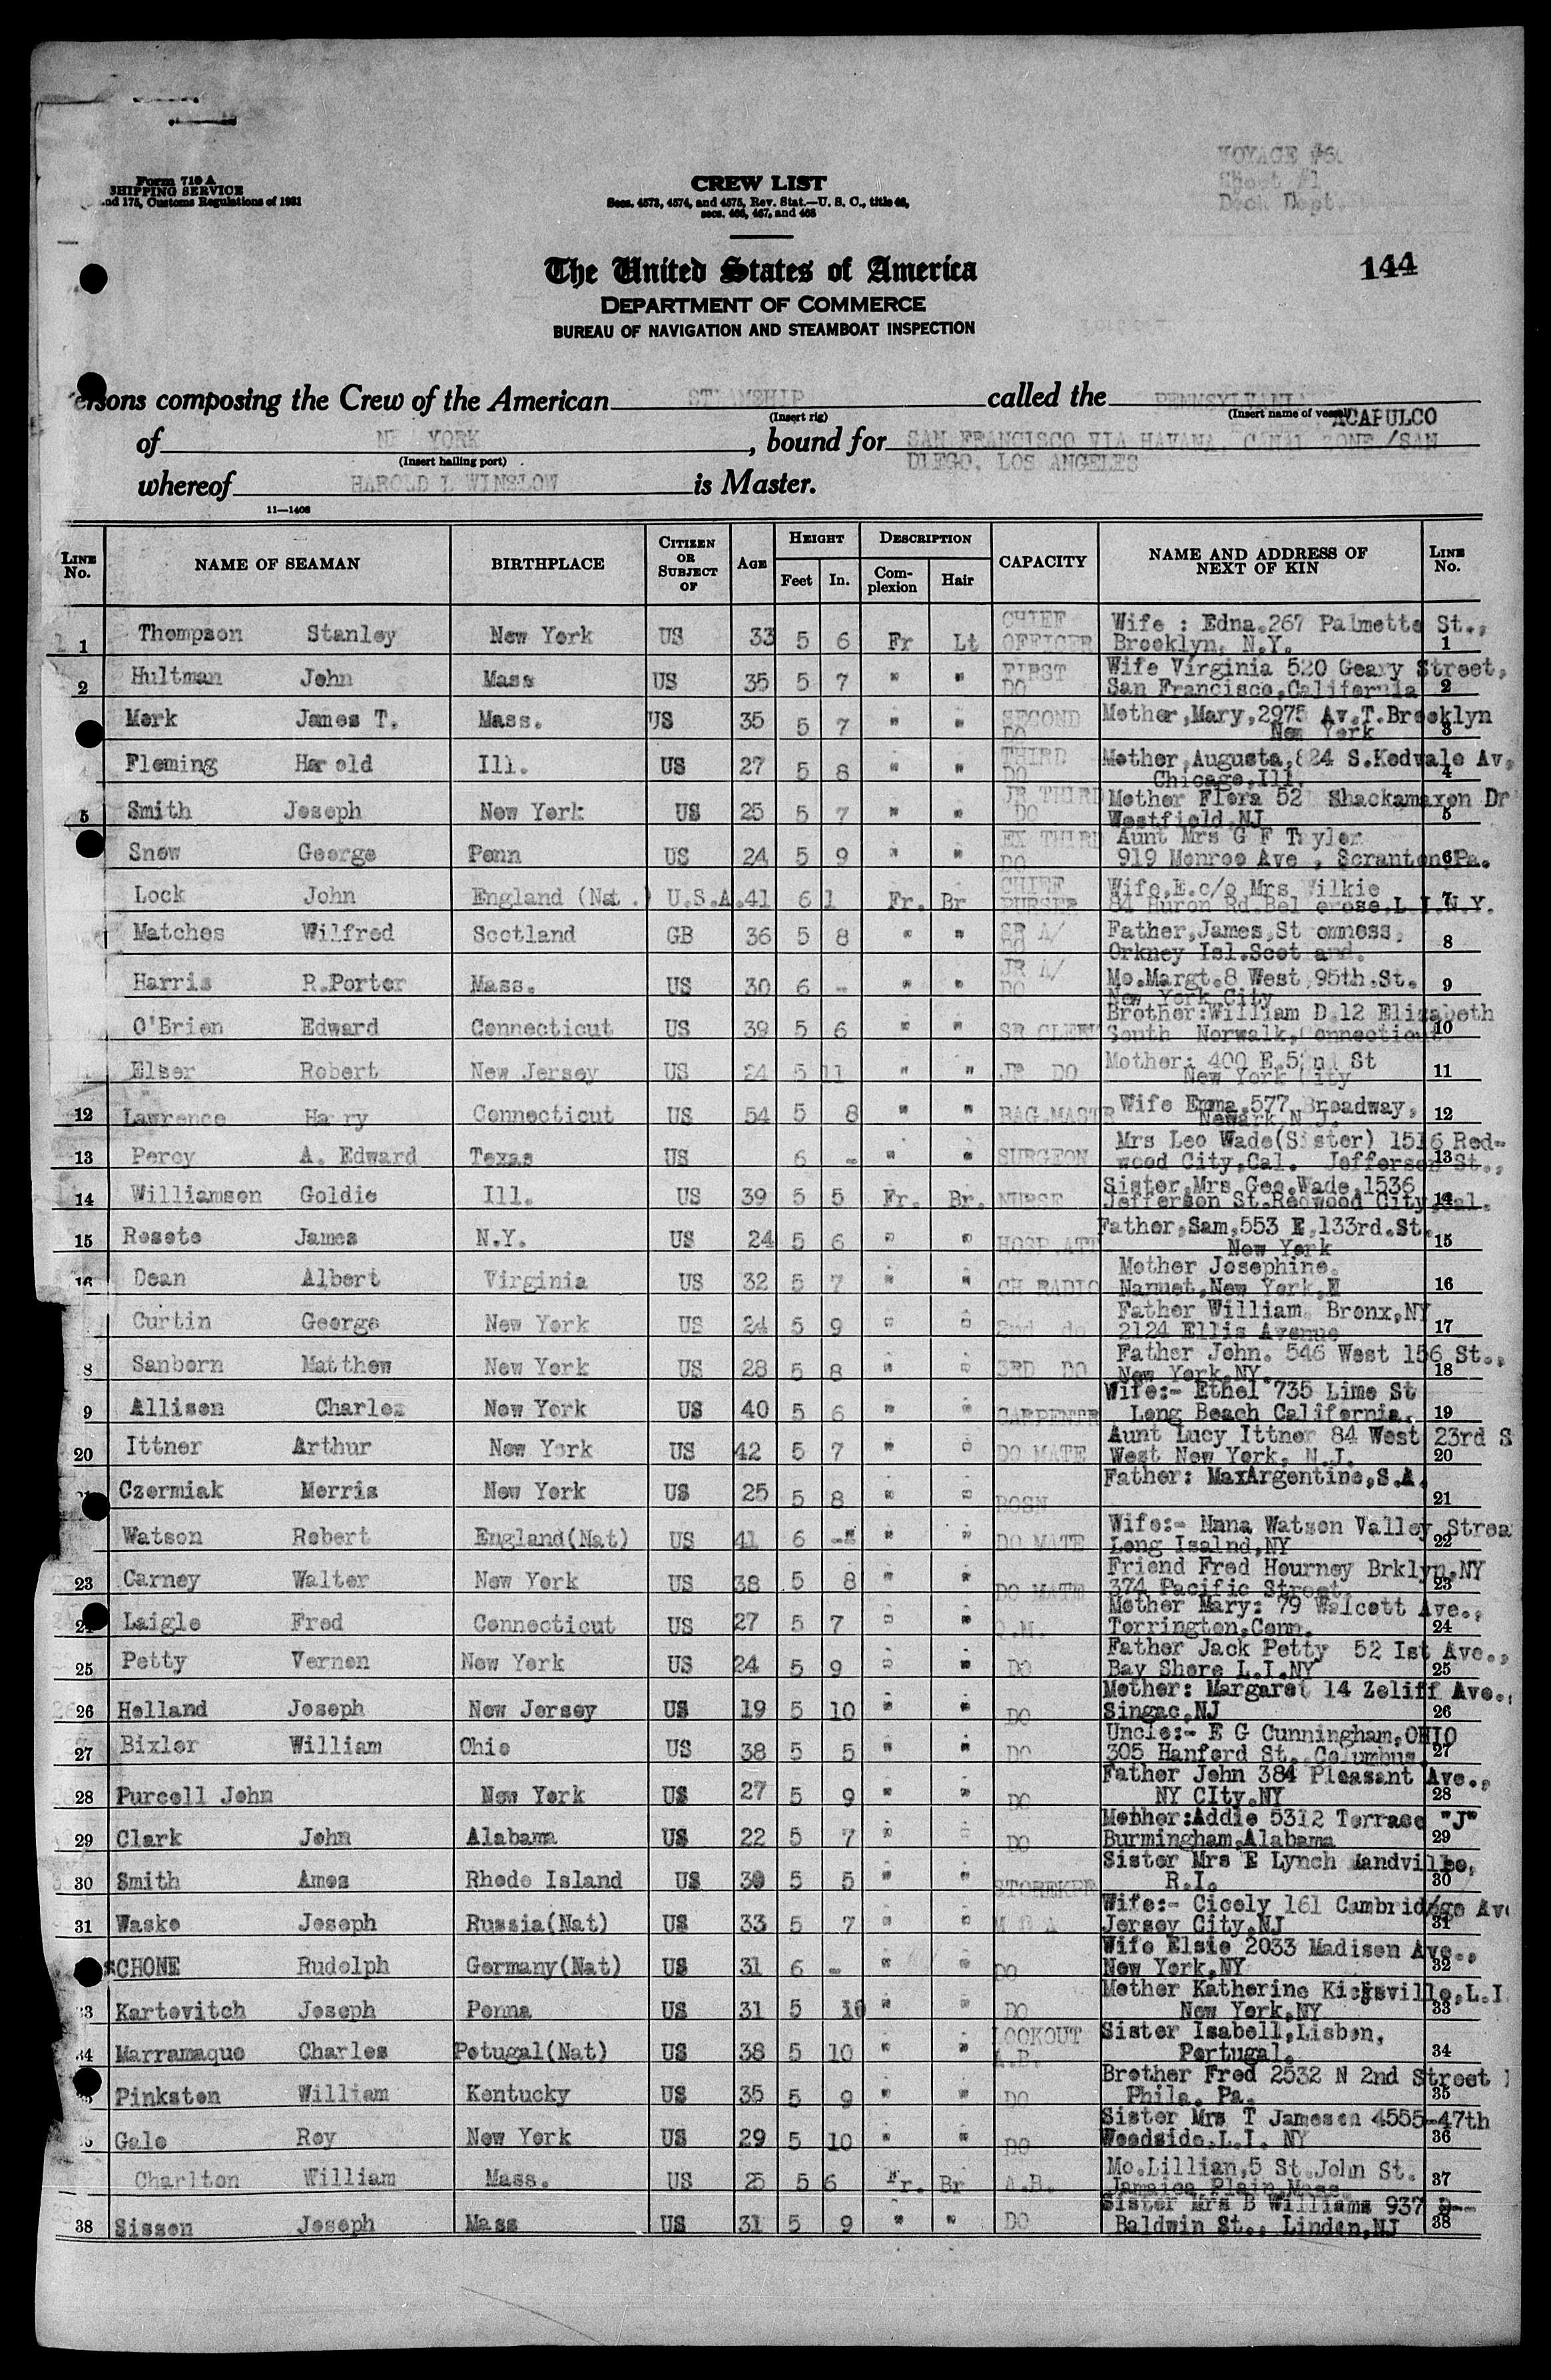 VOYAGE #6
Sheet #1
Deck Dept.
Form 710 A
SHIPPING SERVICE
nd 175, Customs Regulations of 1931
CREW LIST
Secs. 4573, 4574, and 4575, Rev. Stat.—U. S. C., title 46,
secs. 466, 467, and 468
144
The United States of America
DEPARTMENT OF COMMERCE
BUREAU OF NAVIGATION AND STEAMBOAT INSPECTION
ersons composing the Crew of the American STEAMSHIP called the PENNSYLVANIA
(Insert rig) (Insert name of vessel) ACAPULCO
of NEW YORK, bound for SAN FRANCISCO VIA HAVANA, CANAL ZONE/SAN
(Insert hailing port) DIEGO, LOS ANGELES
whereof HAROLD L WINSLOW is Master.
11—1408
LINE No. NAME OF SEAMAN BIRTHPLACE CITIZEN OR SUBJECT OF AGE HEIGHT Feet In. DESCRIPTION Complexion Hair CAPACITY NAME AND ADDRESS OF NEXT OF KIN LINE No.
1 Thompson Stanley New York US 33 5 6 Fr Lt CHIEF OFFICER Wife : Edna.267 Palmetto St., Brooklyn, N.Y. 1
2 Hultman John Mass US 35 5 7 " " FIRST DO Wife Virginia 520 Geary Street, San Francisco,California 2
Mork James T. Mass. US 35 5 7 " " SECOND DO Mother,Mary,2975 Av.T.Brooklyn New York 3
Fleming Harold Ill. US 27 5 8 " " THIRD DO Mother,Augusta,824 S.Kedvale Av, Chicago,Ill. 4
5 Smith Joseph New York US 25 5 7 " " JR THIRD DO Mother Flora 52 Shackamaxon Dr Westfield NJ 5
Snow George Penn US 24 5 9 " " EX THIRD DO Aunt Mrs G F Taylor 919 Monroe Ave , Scranton,Pa. 6
Lock John England (Nat.) U.S.A. 41 6 1 Fr. Br CHIEF PURSER Wife,E.c/o Mrs Wilkie 84 Huron Rd.Bel erose,L.I.N.Y. 7
Matches Wilfred Scotland GB 36 5 8 " " SR A/ DO Father,James,St omness, Orkney Isl.Scot and. 8
Harris R.Porter Mass. US 30 6 - " " JR A/ DO Mo.Margt.8 West 95th.St. New York City 9
O'Brien Edward Connecticut US 39 5 6 " " SR CLERK Brother:William D.12 Elizabeth South Norwalk,Connecticut 10
Elser Robert New Jersey US 24 5 11 " " JR DO Mother: 400 E.52nd St New York City 11
12 Lawrence Harry Connecticut US 54 5 8 " " BAG.MASTR Wife Emma.577 Broadway, Newark,N J. 12
13 Percy A. Edward Texas US 6 - " " SURGEON Mrs Leo Wade(Sister) 1516 Redwood City,Cal. Jefferson St., 13
14 Williamson Goldie Ill. US 39 5 5 Fr. Br. NURSE Sister,Mrs Geo.Wade,1536 Jefferson St.Redwood City,Cal. 14
15 Resete James N.Y. US 24 5 6 " " HOSP.ATT Father,Sam,553 E,133rd.St. New York 15
16 Dean Albert Virginia US 32 5 7 " " CH RADIO Mother Josephine. Nanuet,New York,N 16
Curtin George New York US 24 5 9 " " 2nd do Father William. Bronx,NY 2124 Ellis Avenue 17
8 Sanborn Matthew New York US 28 5 8 " " 3RD DO Father John. 546 West 156 St., New York,NY. 18
9 Allison Charles New York US 40 5 6 " " CARPENTR Wife:- Ethel 735 Lime St Long Beach California. 19
20 Ittner Arthur New York US 42 5 7 " " DO MATE Aunt Lucy Ittner 84 West 23rd S West New York, N.J. 20
Czermiak Morris New York US 25 5 8 " " BOSN Father: MaxArgentine,S.A. 21
Watson Robert England(Nat) US 41 6 -" " " DO MATE Wife:- Nana Watson Valley Strea Long Isalnd,NY 22
23 Carney Walter New York US 38 5 8 " " DO MATE Friend Fred Hourney Brklyn,NY 374 Pacific Street. 23
24 Laigle Fred Connecticut US 27 5 7 " " Q.M. Mother Mary: 79 Walcott Ave., Torrington,Conn. 24
25 Petty Vernon New York US 24 5 9 " " DO Father Jack Petty 52 Ist Ave., Bay Shore L.I.NY 25
26 Holland Joseph New Jersey US 19 5 10 " " DO Mother: Margaret 14 Zeliff Ave., Singac,NJ 26
27 Bixler William Ohio US 38 5 5 " " DO Uncle:- E G Cunningham,OHIO 305 Hanford St. Columbus. 27
28 Purcell John New York US 27 5 9 " " DO Father John 384 Pleasant Ave., NY CIty.NY 28
29 Clark John Alabama US 22 5 7 " " DO Mother:Addie 5312 Terrace "J" Burmingham,Alabama 29
30 Smith Amos Rhode Island US 30 5 5 " " STOREKER Sister Mrs E Lynch Mandville, R.I. 30
31 Waske Joseph Russia(Nat) US 33 5 7 " " M D A Wife:- Cicely 161 Cambridge Ave Jersey City,NJ 31
SCHONE Rudolph Germany(Nat) US 31 6 - " " DO Wife Elsie 2033 Madison Ave., New York,NY 32
33 Kartovitch Joseph Penna US 31 5 10 " " DO Mother Katherine Kicksville,L.I. New York,NY 33
34 Marramaque Charles Potugal(Nat) US 38 5 10 " " LOOKOUT A.B. Sister Isabell,Lisbon, Portugal. 34
Pinkston William Kentucky US 35 5 9 " " DO Brother Fred 2532 N 2nd Street Phila. Pa. 35
Gale Roy New York US 29 5 10 " " DO Sister Mrs T Jameson 4555-47th Woodside.L.I. NY 36
Charlton William Mass. US 25 5 6 Fr. Br A.B. Mo.Lillian,5 St.John St. Jamaica Plain,Mass. 37
38 Sisson Joseph Mass US 31 5 9 " " DO Sister Mrs B Williams 937 Baldwin St., Linden,NJ 38